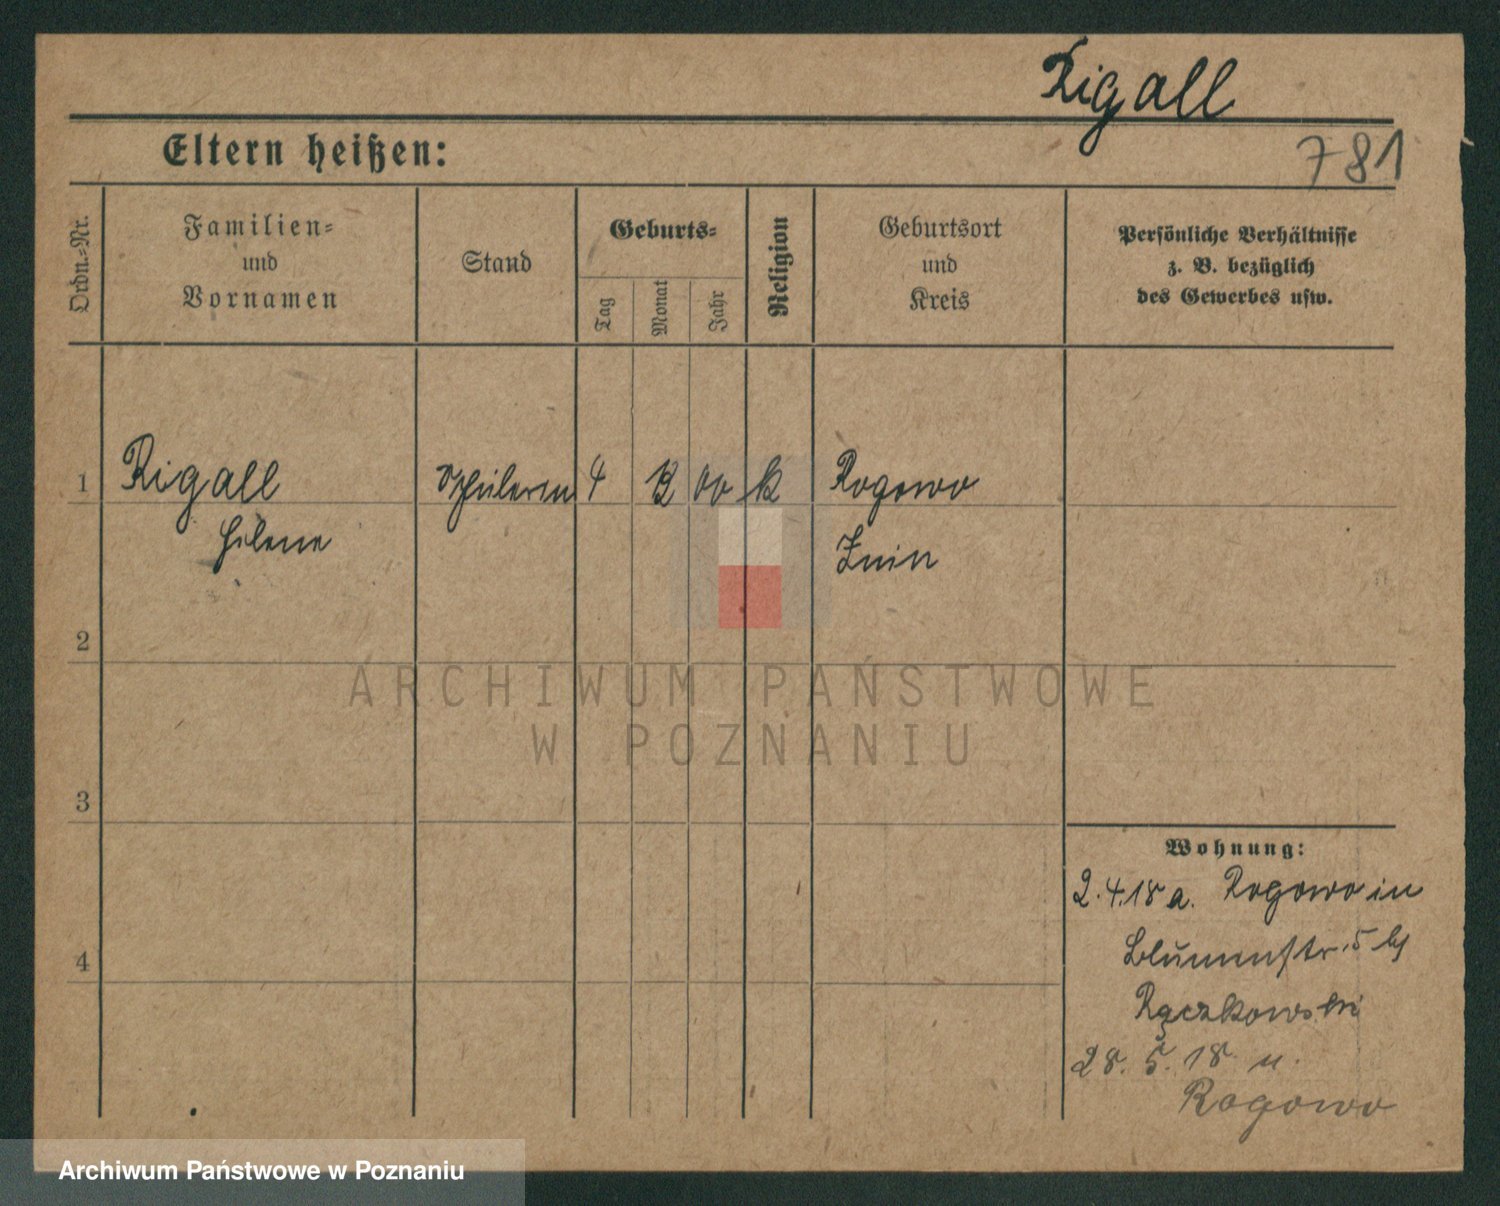 Rigall
781
Eltern heißen:
Ordn.-Nr.
Familien-
und
Vornamen
Stand
Geburts-
Tag
Monat
Jahr
Religion
Geburtsort
und
Kreis
Persönliche Verhältnisse
z. B. bezüglich
des Gewerbes usw.
1 Rigall Schülerin 4 00 k Rogowo
Helene Znin
2
3
4
Wohnung:
2.4.18 a. Rogowo in
Blumenstr. 5 b/
Rączkowski
28.5.18 n.
Rogowo
ARCHIWUM PAŃSTWOWE
W POZNANIU
Archiwum Państwowe w Poznaniu